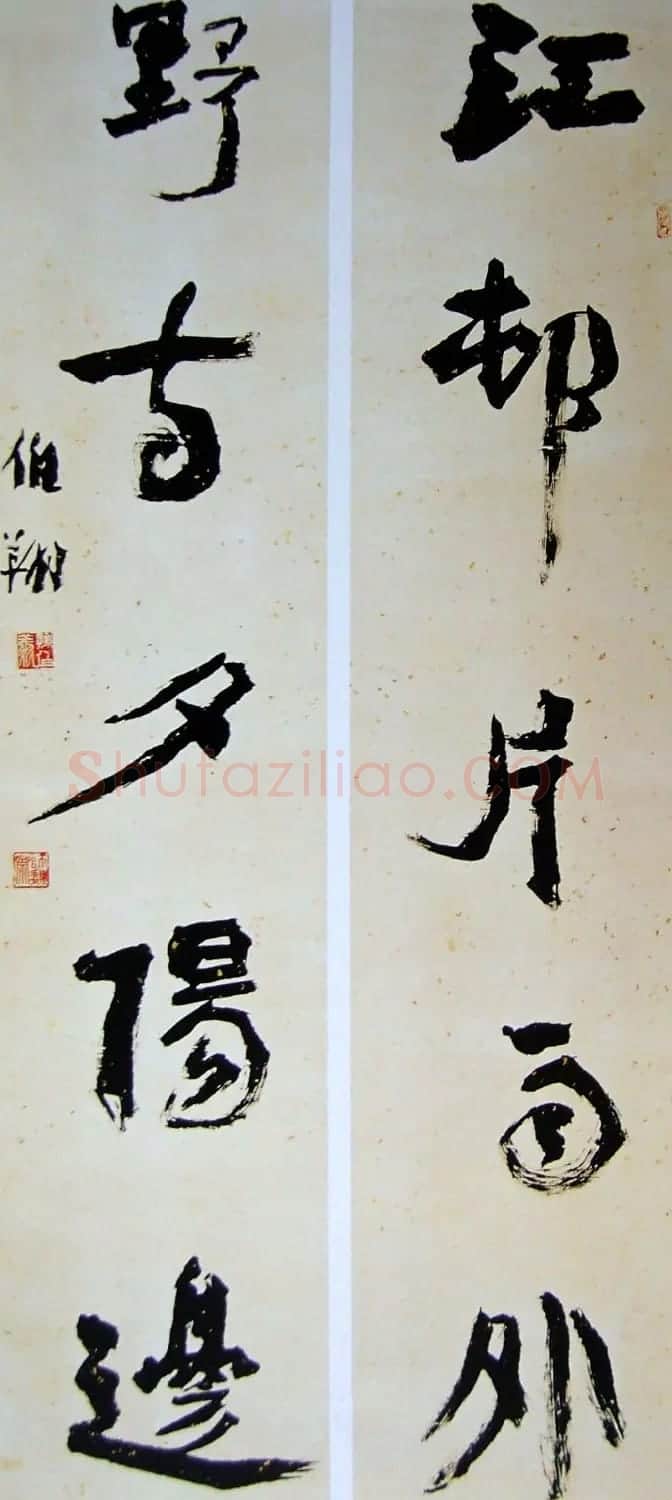 江邨片雨外
野寺夕陽邊
伯翔
Shufaziliao.COM